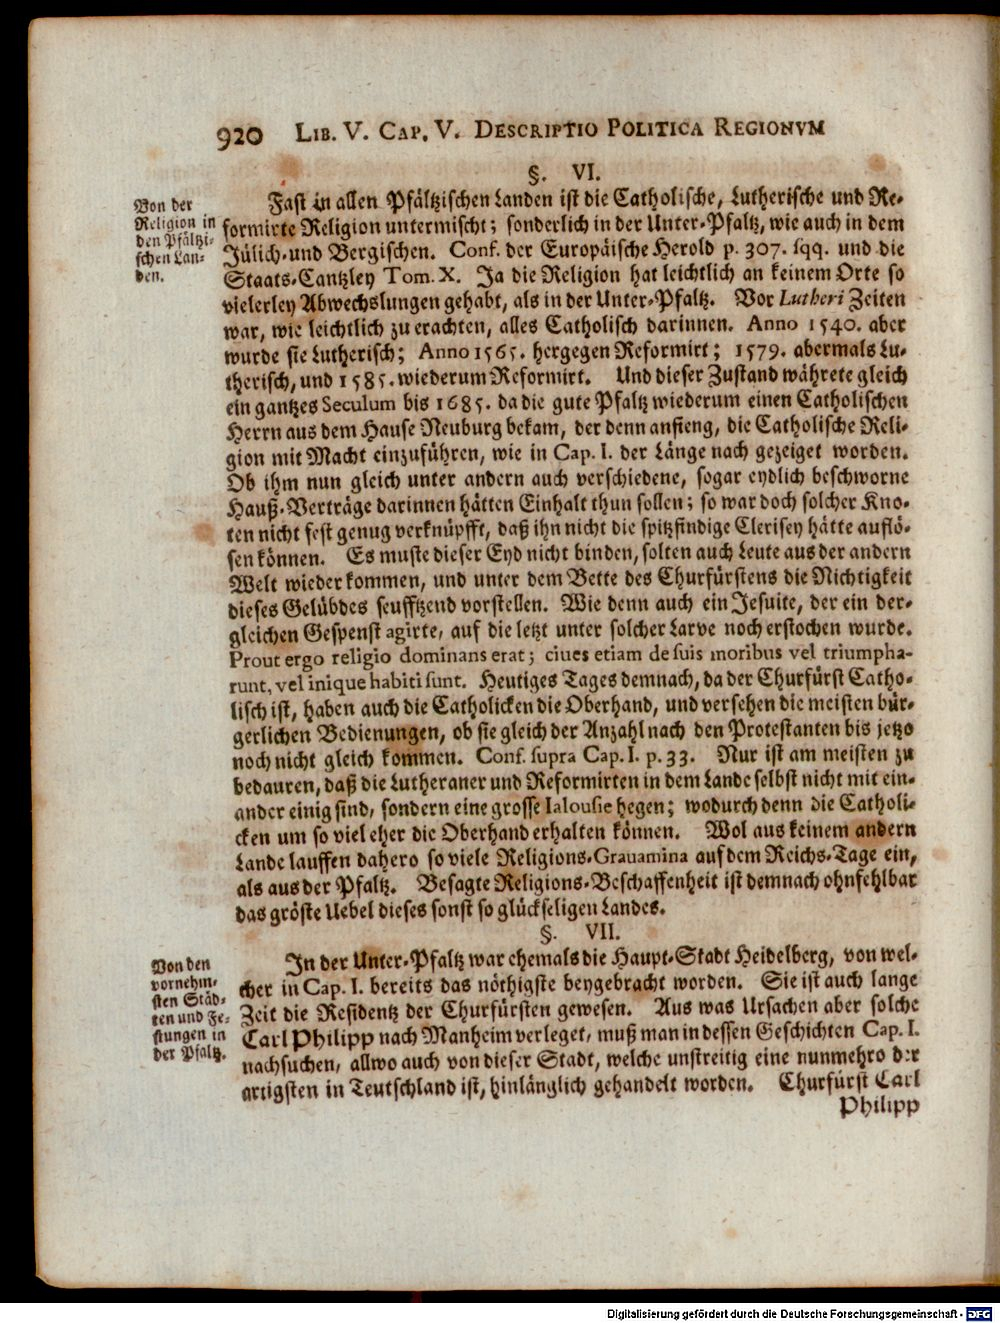 920 LIB. V. CAP. V. DESCRIPTIO POLITICA REGIONVM
§. VI.
Von der
Religion in
den Pfältzi-
schen Lan-
den.
Fast in allen Pfältzischen Landen ist die Catholische, Lutherische und Re-
formirte Religion untermischt; sonderlich in der Unter-Pfaltz, wie auch in dem
Jülich-und Bergischen. Conf. der Europäische Herold p. 307. sqq. und die
Staats-Cantzley Tom. X. Ja die Religion hat leichtlich an keinem Orte so
vielerley Abwechslungen gehabt, als in der Unter-Pfaltz. Vor Lutheri Zeiten
war, wie leichtlich zu erachten, alles Catholisch darinnen. Anno 1540. aber
wurde sie Lutherisch; Anno 1565. hergegen Reformirt; 1579. abermals Lu-
therisch, und 1585. wiederum Reformirt. Und dieser Zustand währete gleich
ein gantzes Seculum bis 1685. da die gute Pfaltz wiederum einen Catholischen
Herrn aus dem Hause Neuburg bekam, der denn anfieng, die Catholische Reli-
gion mit Macht einzuführen, wie in Cap. I. der Länge nach gezeiget worden.
Ob ihm nun gleich unter andern auch verschiedene, sogar eydlich beschworne
Hauß-Verträge darinnen hätten Einhalt thun sollen; so war doch solcher Kno-
ten nicht fest genug verknüpfft, daß ihn nicht die spitzfindige Clerisey hätte auflö-
sen können. Es muste dieser Eyd nicht binden, solten auch Leute aus der andern
Welt wieder kommen, und unter dem Bette des Churfürstens die Nichtigkeit
dieses Gelübdes seufftzend vorstellen. Wie denn auch ein Jesuite, der ein der-
gleichen Gespenst agirte, auf die letzt unter solcher Larve noch erstochen wurde.
Prout ergo religio dominans erat; ciues etiam de suis moribus vel triumpha-
runt, vel inique habiti sunt. Heutiges Tages demnach, da der Churfürst Catho-
lisch ist, haben auch die Catholicken die Oberhand, und versehen die meisten bür-
gerlichen Bedienungen, ob sie gleich der Anzahl nach den Protestanten bis jetzo
noch nicht gleich kommen. Conf. supra Cap. I. p. 33. Nur ist am meisten zu
bedauren, daß die Lutheraner und Reformirten in dem Lande selbst nicht mit ein-
ander einig sind, sondern eine grosse Ialousie hegen; wodurch denn die Catholi-
cken um so viel eher die Oberhand erhalten können. Wol aus keinem andern
Lande lauffen dahero so viele Religions-Gravamina auf dem Reichs-Tage ein,
als aus der Pfaltz. Besagte Religions-Beschaffenheit ist demnach ohnfehlbar
das gröste Uebel dieses sonst so glückseligen Landes.
§. VII.
Von den
vornehm-
sten Städ-
ten und Fe-
stungen in
der Pfaltz.
In der Unter-Pfaltz war ehemals die Haupt-Stadt Heidelberg, von wel-
cher in Cap. I. bereits das nöthigste beygebracht worden. Sie ist auch lange
Zeit die Residentz der Churfürsten gewesen. Aus was Ursachen aber solche
Carl Philipp nach Manheim verleget, muß man in dessen Geschichten Cap. I.
nachsuchen, allwo auch von dieser Stadt, welche unstreitig eine nunmehro der
artigsten in Teutschland ist, hinlänglich gehandelt worden. Churfürst Carl
Philipp
Digitalisierung gefördert durch die Deutsche Forschungsgemeinschaft - DFG